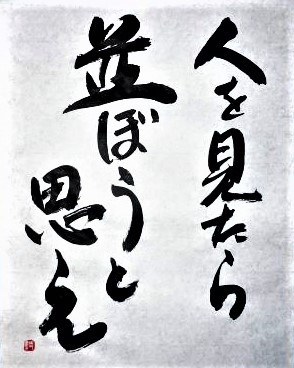 人を見たら
並ぼうと
思え